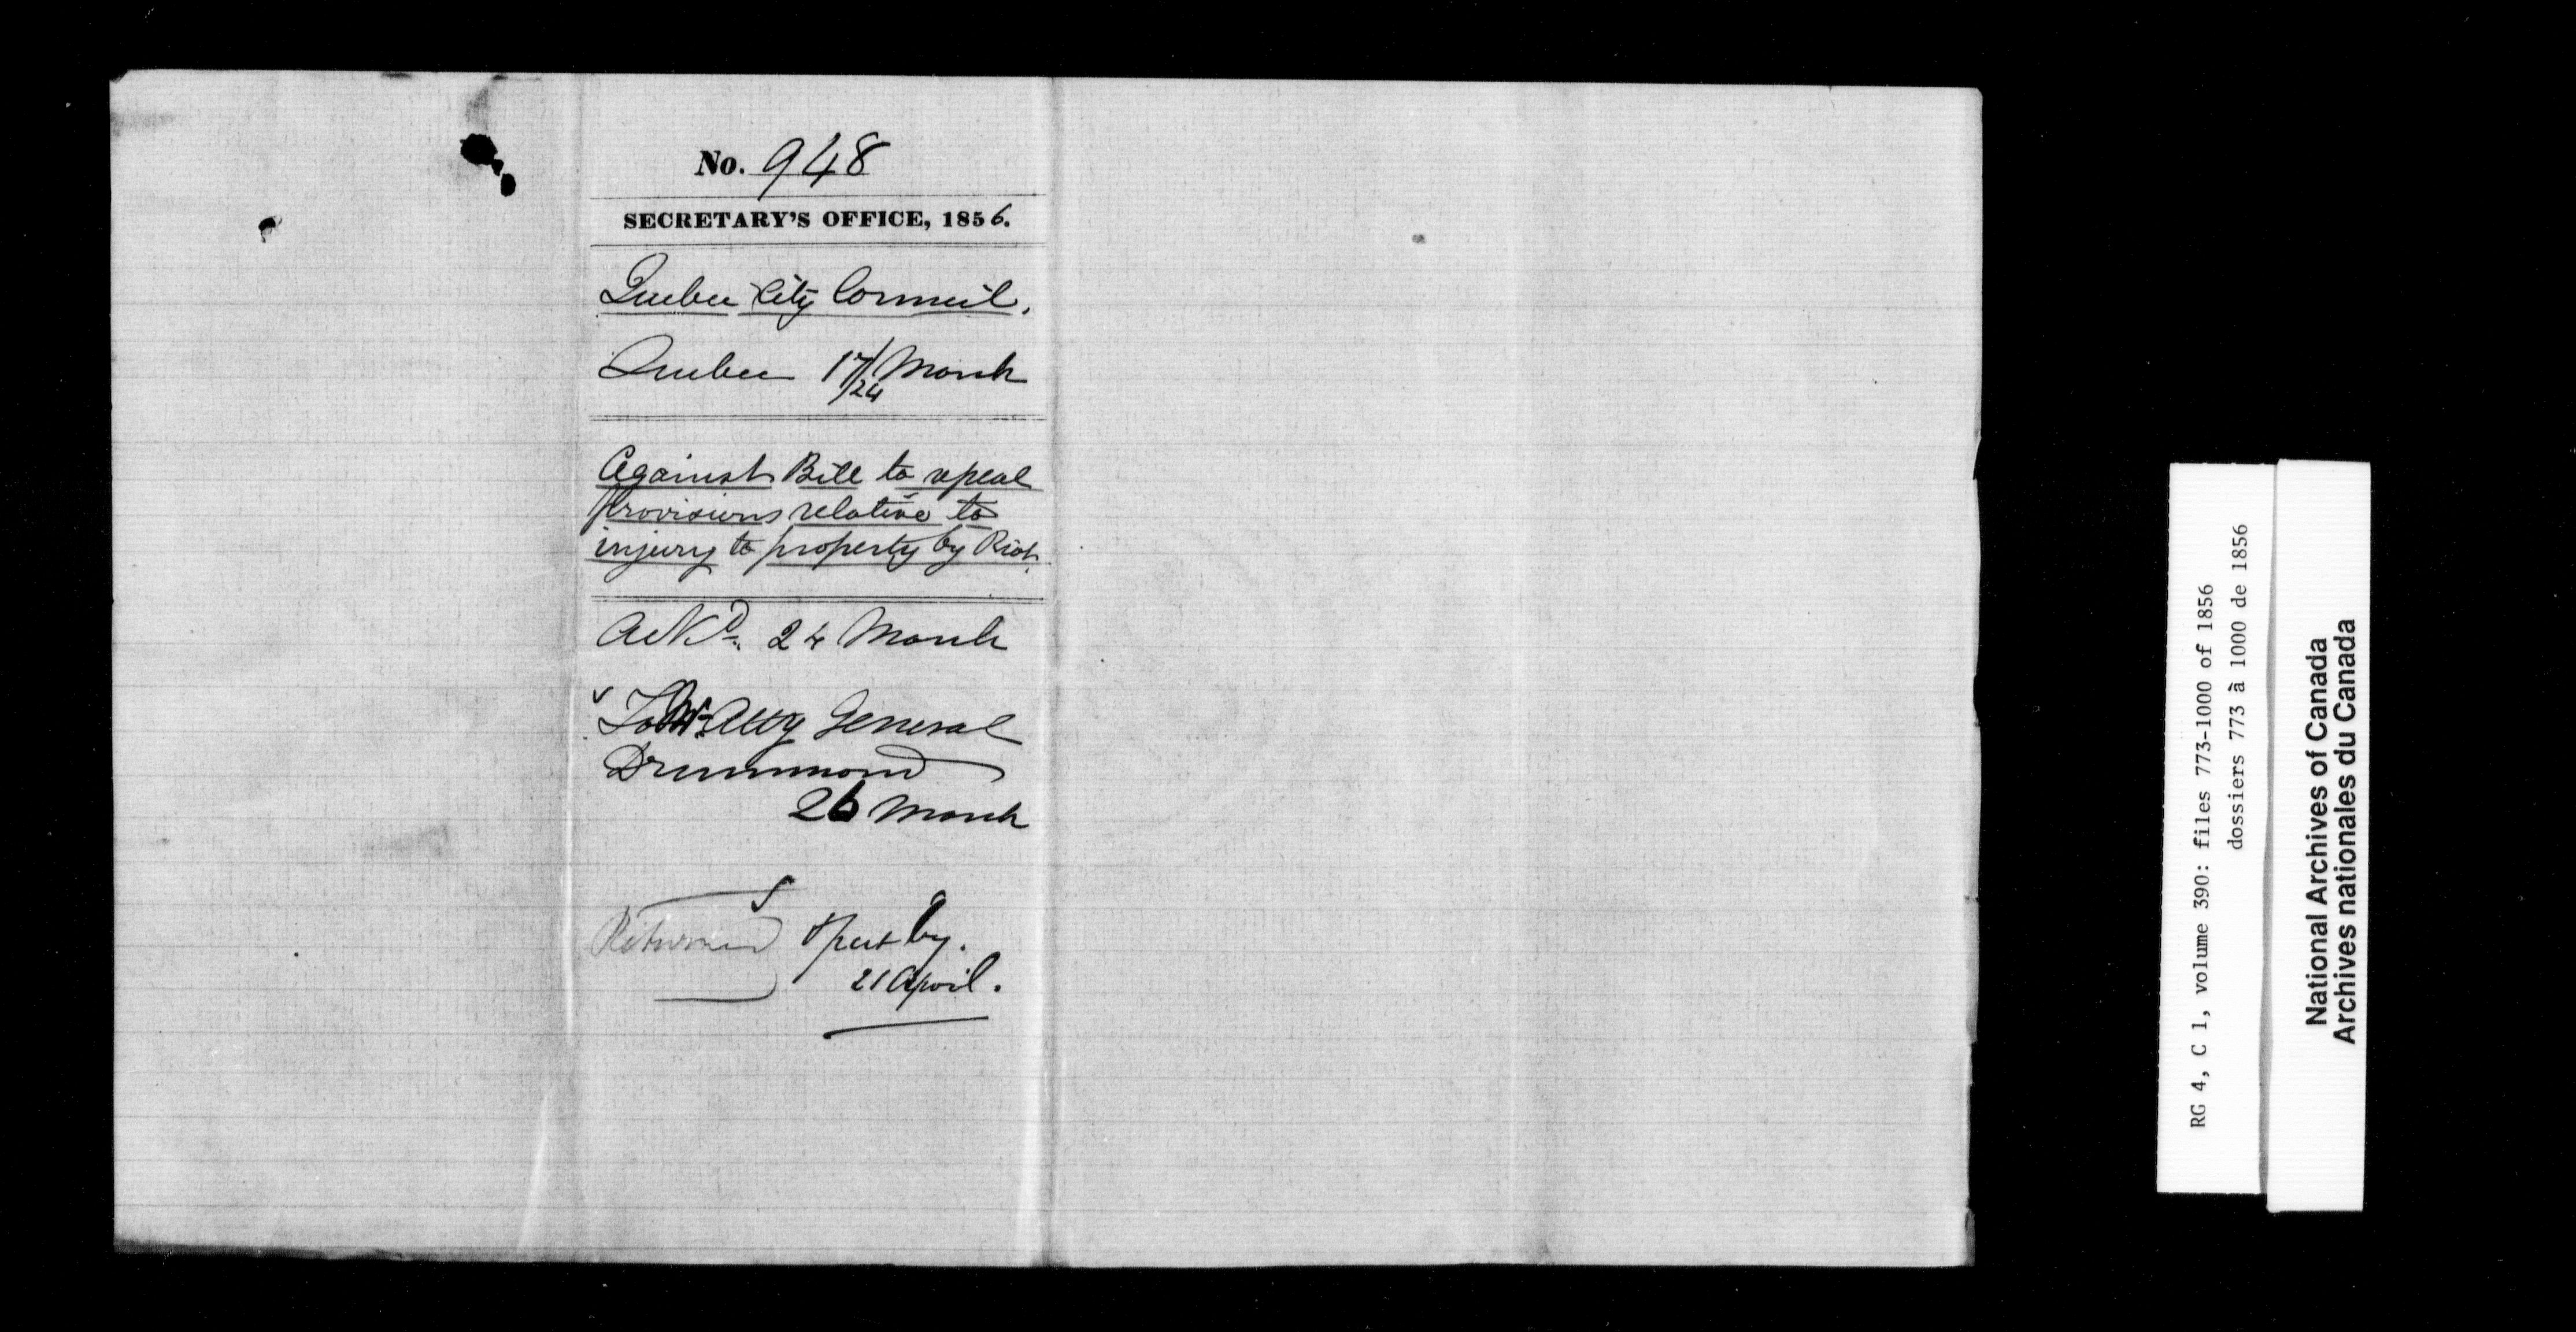 No. 948
SECRETARY'S OFFICE, 1856.
Quebec City Council.
Quebec 17/24 March
Against Bill to repeal
provisions relative to
injury to property by Riot.
Ackd. 24 March
To Mr. Atty General
Drummond
26 March
Returned & put by.
21 April.
RG 4, C 1, volume 390: files 773-1000 of 1856
dossiers 773 à 1000 de 1856
National Archives of Canada
Archives nationales du Canada